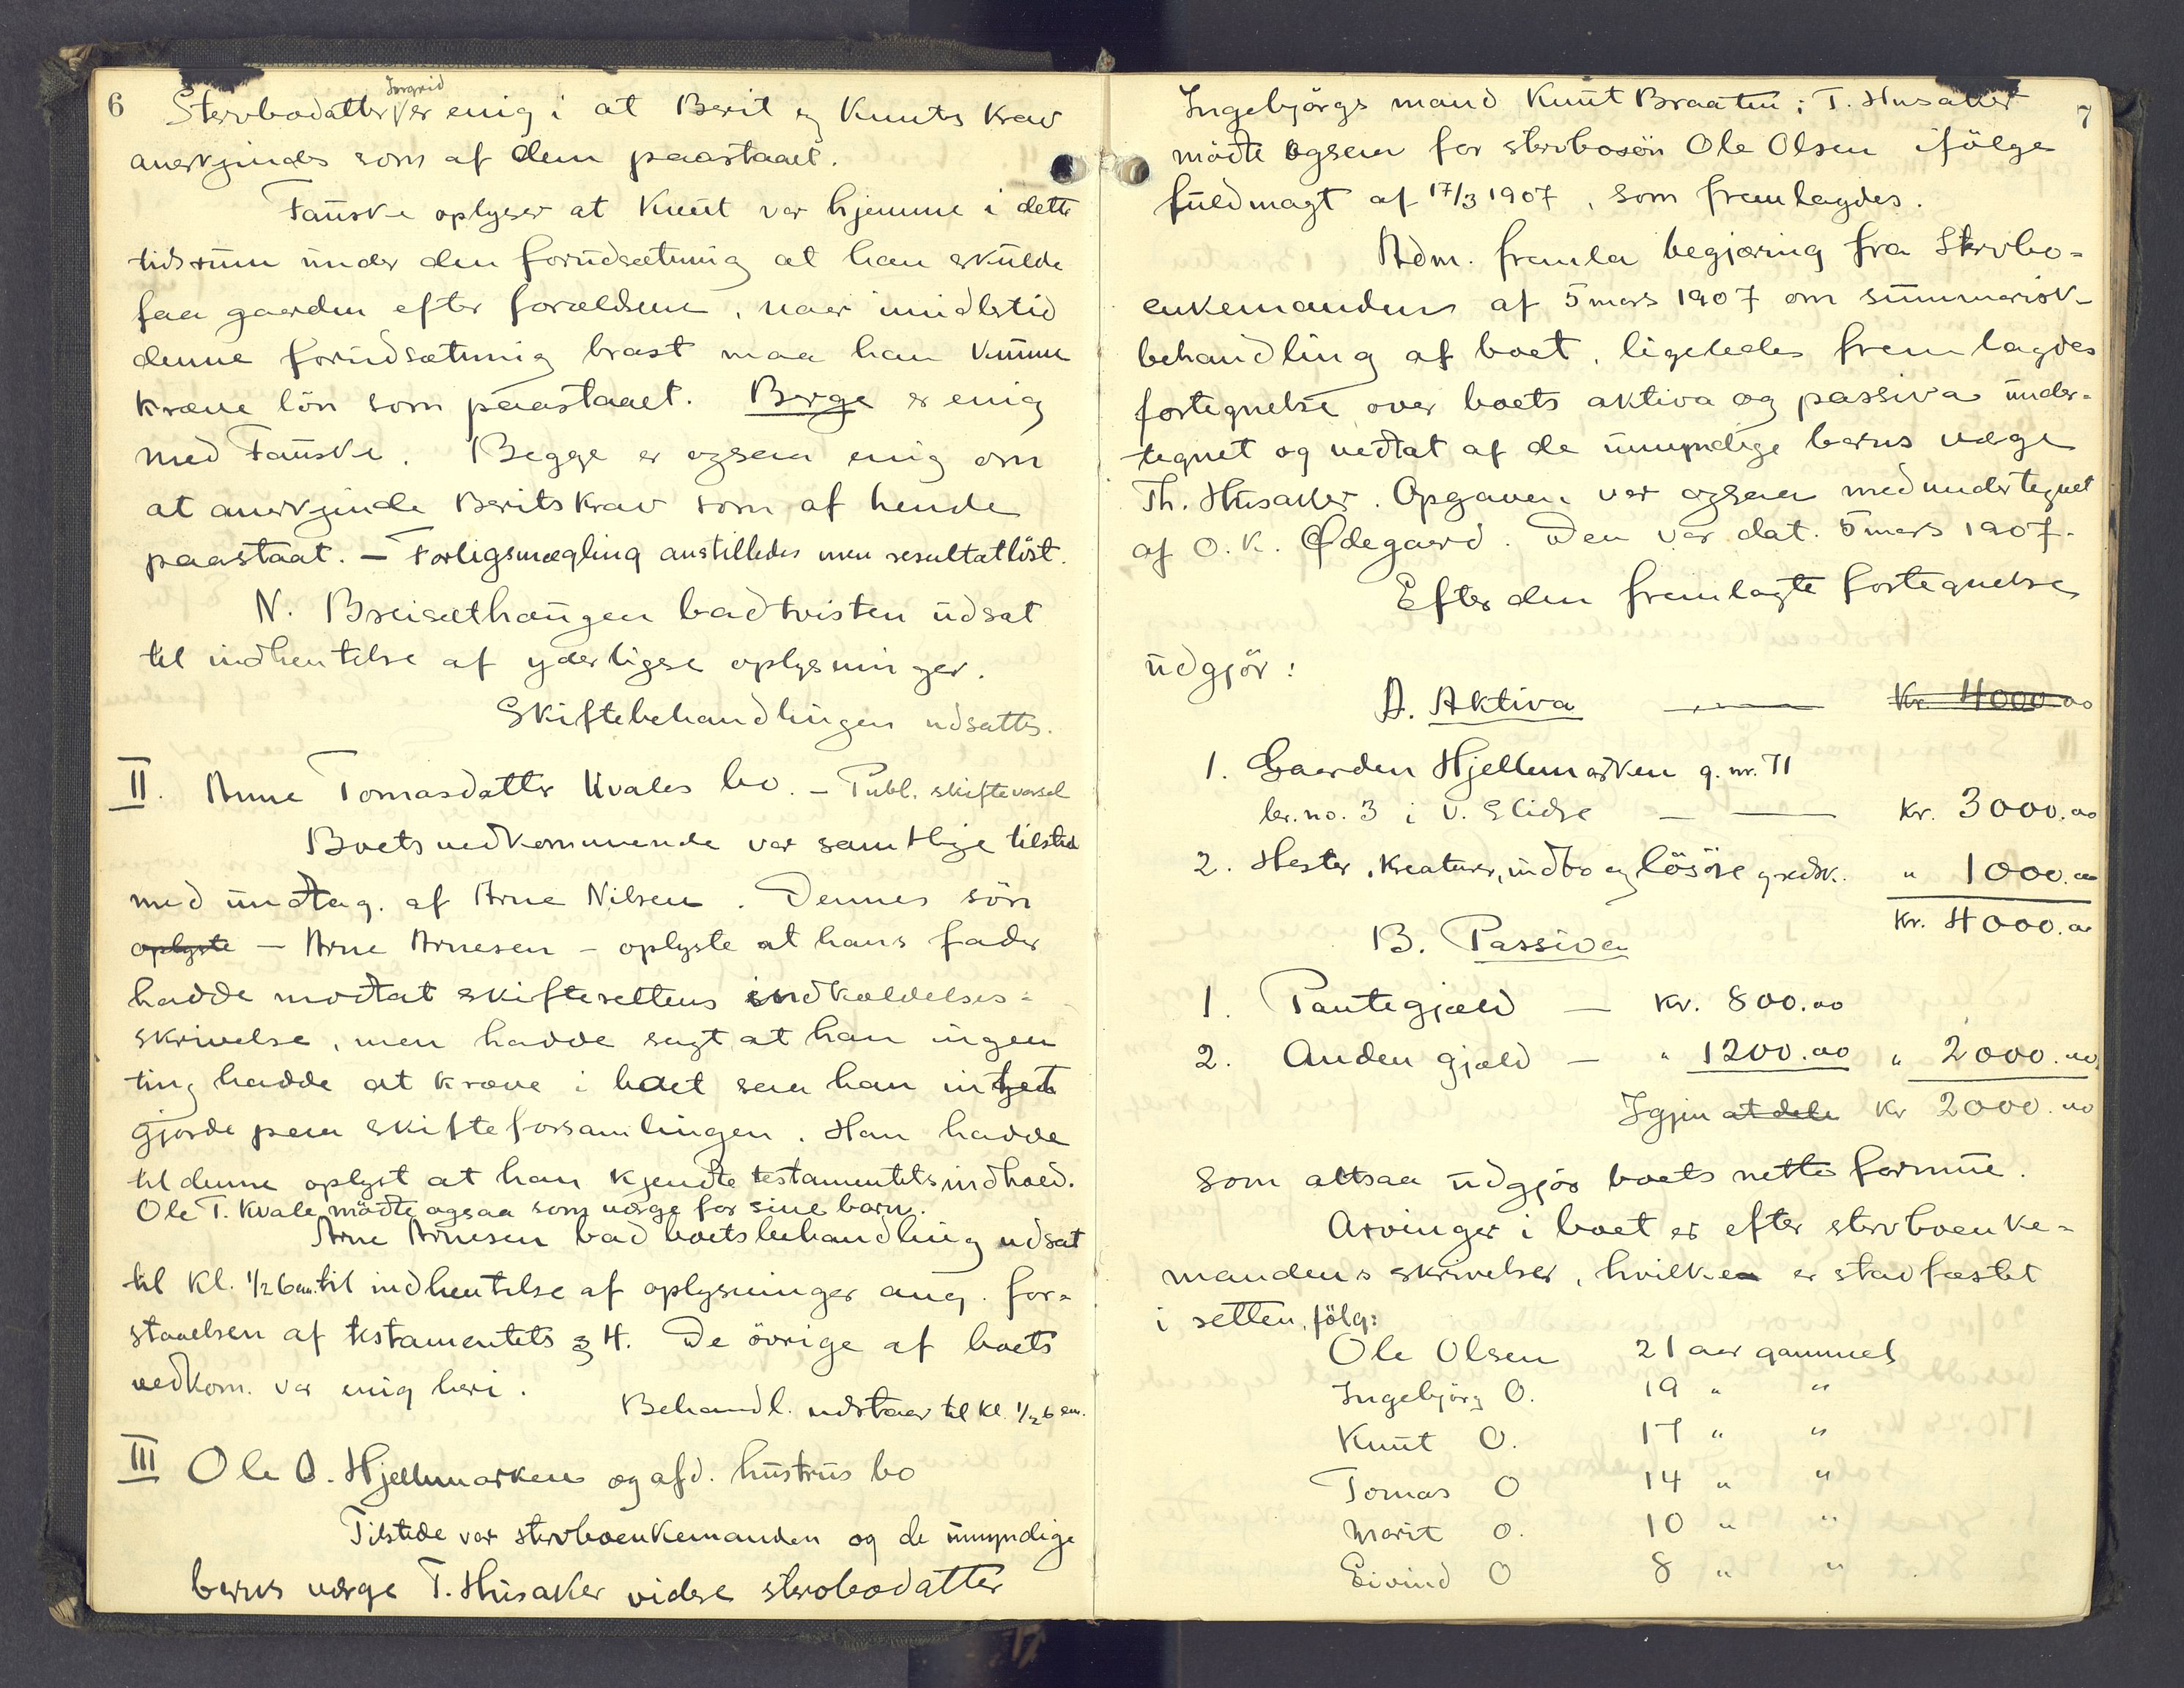 6
Ingrid
Stervbodatter er enig i at Berit og Knuts krav
anerkjendes som af dem paastaaet.
Fauske oplyser at Knut var hjemme i dette
tidsrum under den forudsætning at han skulde
faa gaarden efter forældrene, naar imidlertid
denne forudsætning brast maa han kunne
kræve lön som paastaaet. Berge er enig
med Fauske. Begge er ogsaa enig om
at anerkjende Berits krav som af hende
paastaat. — Forligsmægling anstilledes men resultatlöst.
N. Breisæthaugen bad tvisten udsat
til indhentelse af yderligere oplysninger.
Skiftebehandlingen udsattes.
II. Anne Tomasdatter Kvales bo. — Publ. skiftevarsel
Boets vedkommende var samtlige tilsted
med undtag. af Arne Nilsen. Dennes sön
oplyste — Arne Arnesen — oplyste at hans fader
hadde modtat skifterettens indkaldelses=
skrivelse, men hadde sagt at han ingen
ting hadde at kræve i boet saa han intet
gjorde paa skifteforsamlingen. Han hadde
til denne oplyst at han kjendte testamentets indhold.
Ole T. Kvale mödte ogsaa som værge for sine barn.
Arne Arnesen bad boets behandling udsat
til kl. 1/2 6 em. til indhentelse af oplysninger ang. for=
staaelsen af testamentets § 4. De övrige af boets
vedkom. var enig heri.
Behandl. udstaar til kl. 1/2 6 em.
III Ole O. Hjellmarken og afd. hustrus bo
Tilstede var stervboenkemanden og de umyndige
barns værge T. Husaker videre stervbodatter
7
Ingebjörgs mand Knut Braaten; T. Husaker
mödte ogsaa for stervbosön Ole Olsen ifölge
fuldmagt af 17/3 1907, som fremlagdes.
Adm. fremla begjæring fra Stervbo=
enkemanden af 5 mars 1907 om summarisk
behandling af boet, ligeledes fremlagdes
fortegnelse over boets aktiva og passiva under=
tegnet og vedtat af de umyndige barns værge
Th. Husaker. Opgaven var ogsaa medundertegnet
af O. K. Ødegaard. Den var dat. 5 mars 1907.
Efter den fremlagte fortegnelse
udgjör:
A. Aktiva — kr. 4000.00
1. Gaarden Hjellmarken g. nr. 71
br. no. 3 i V. Slidre — — kr. 3000.00
2. Hester, kreaturer, indbo og lösöre gredsk. " 1000.00
kr. 4000.00
B. Passiva
1. Pantegjæld — kr. 800.00
2. Anden gjæld — " 1200.00 " 2000.00
Igjen at dele kr 2000.00
som altsaa udgjör boets netto formue.
Arvinger i boet er efter stervboenke=
mandens skrivelse, hvilken er stadfæstet
i retten, fölg:
Ole Olsen 21 aar gammel
Ingebjörg O. 19 " "
Knut O. 17 " "
Tomas O 14 " "
Marit O. 10 " "
Eivind O 8 " "